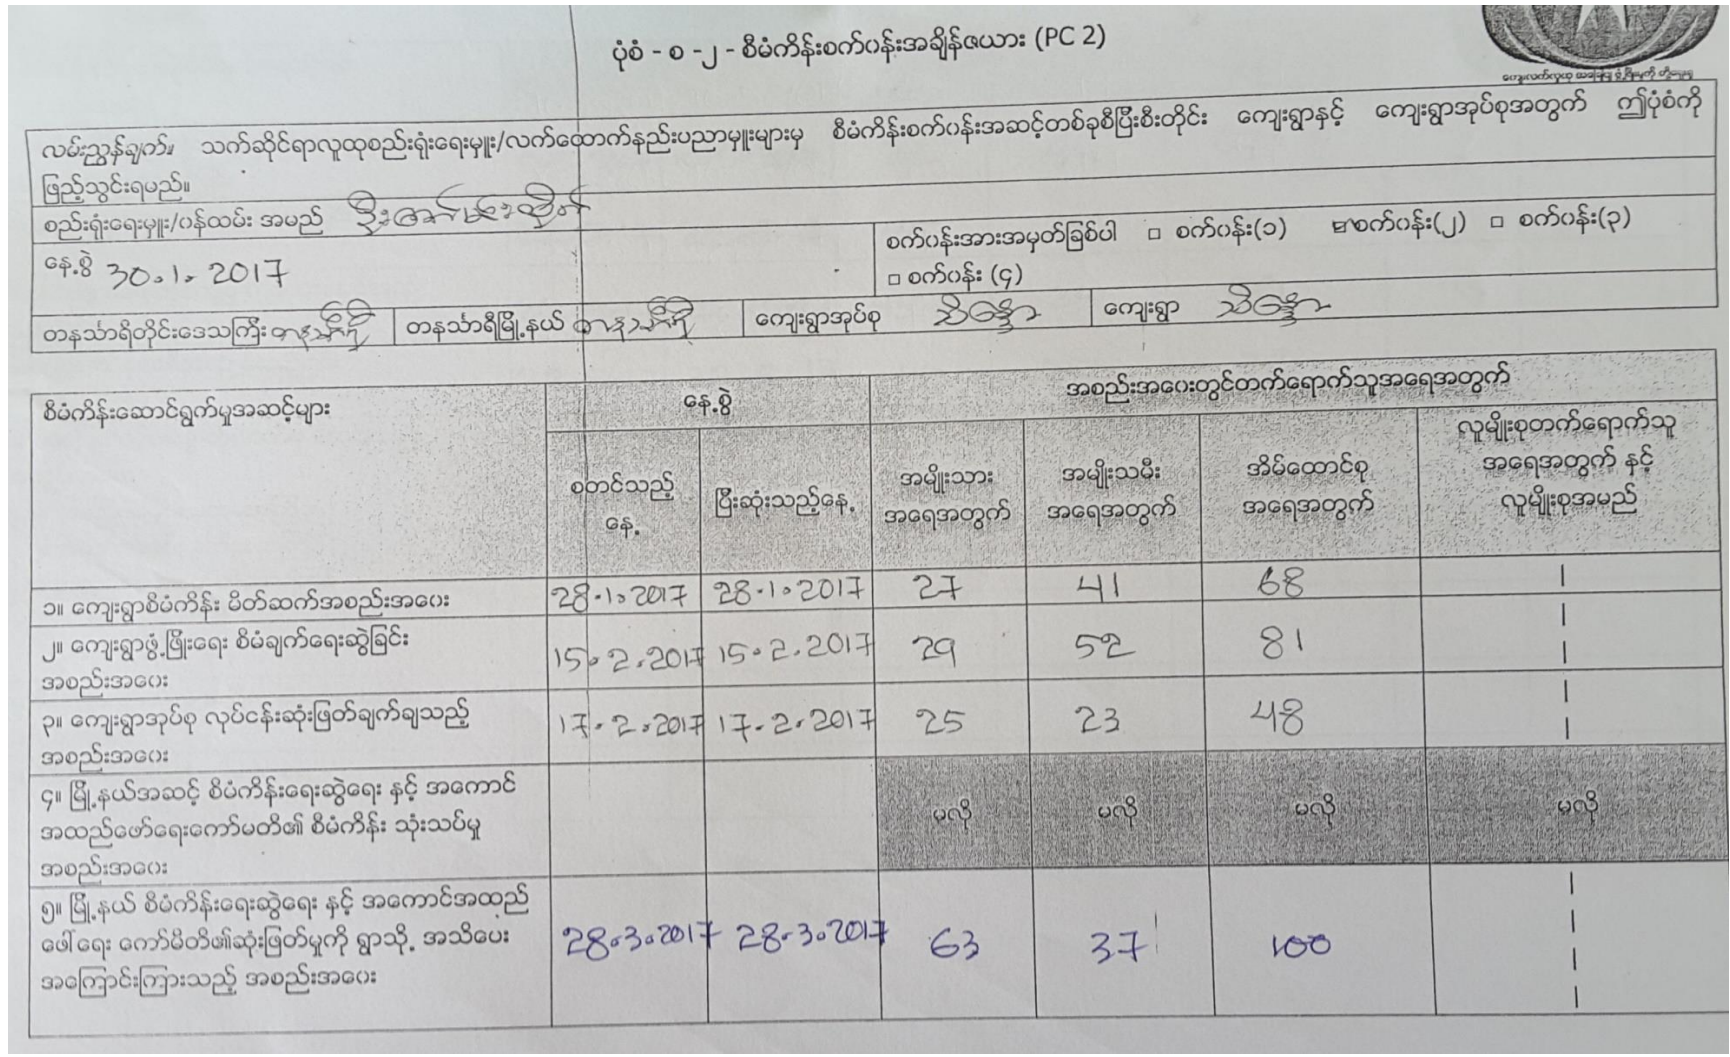 ပုံစံ - စ -၂ - စီမံကိန်းစက်ဝန်းအချိန်ဇယား (PC 2)
လမ်းညွှန်ချက်။ သက်ဆိုင်ရာလူထုစည်းရုံးရေးမှူး/လက်ထောက်နည်းပညာမှူးများမှ စီမံကိန်းစက်ဝန်းအဆင့်တစ်ခုစီပြီးစီးတိုင်း ကျေးရွာနှင့် ကျေးရွာအုပ်စုအတွက် ဤပုံစံကို
ဖြည့်သွင်းရမည်။
စည်းရုံးရေးမှူး/ဝန်ထမ်း အမည်
နေ့စွဲ 30.1.2017
စက်ဝန်းအားအမှတ်ခြစ်ပါ □ စက်ဝန်း(၁) ☑စက်ဝန်း(၂) □ စက်ဝန်း(၃)
□ စက်ဝန်း (၄)
တနင်္သာရီတိုင်းဒေသကြီး တနင်္သာရီ တနင်္သာရီမြို့နယ် တနင်္သာရီ ကျေးရွာအုပ်စု ကျေးရွာ
စီမံကိန်းဆောင်ရွက်မှုအဆင့်များ
နေ့စွဲ
အစည်းအဝေးတွင်တက်ရောက်သူအရေအတွက်
စတင်သည့်
နေ့
ပြီးဆုံးသည့်နေ့
အမျိုးသား
အရေအတွက်
အမျိုးသမီး
အရေအတွက်
အိမ်ထောင်စု
အရေအတွက်
လူမျိုးစုတက်ရောက်သူ
အရေအတွက် နှင့်
လူမျိုးစုအမည်
၁။ ကျေးရွာစီမံကိန်း မိတ်ဆက်အစည်းအဝေး 28.1.2017 28.1.2017 27 41 68
၂။ ကျေးရွာဖွံ့ဖြိုးရေး စီမံချက်ရေးဆွဲခြင်း
အစည်းအဝေး 15.2.2017 15.2.2017 29 52 81
၃။ ကျေးရွာအုပ်စု လုပ်ငန်းဆုံးဖြတ်ချက်ချသည့်
အစည်းအဝေး 17.2.2017 17.2.2017 25 23 48
၄။ မြို့နယ်အဆင့် စီမံကိန်းရေးဆွဲရေး နှင့် အကောင်
အထည်ဖော်ရေးကော်မတီ၏ စီမံကိန်း သုံးသပ်မှု
အစည်းအဝေး မလို မလို မလို မလို
၅။ မြို့နယ် စီမံကိန်းရေးဆွဲရေး နှင့် အကောင်အထည်
ဖေါ်ရေး ကော်မိတီ၏ဆုံးဖြတ်မှုကို ရွာသို့ အသိပေး
အကြောင်းကြားသည့် အစည်းအဝေး 28.3.2017 28.3.2017 63 37 100